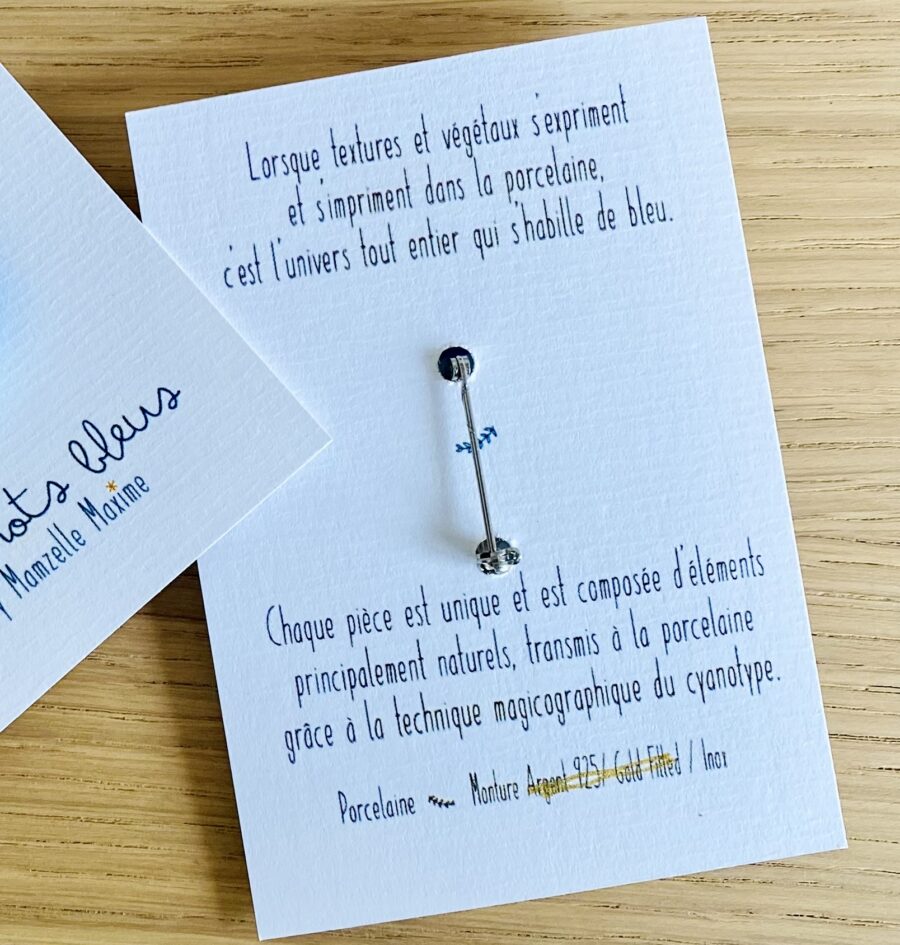 Lorsque textures et végétaux s'expriment
et s'impriment dans la porcelaine,
c'est l'univers tout entier qui s'habille de bleu.
bleus
Mamzelle Maxime
Chaque pièce est unique et est composée d'éléments
principalement naturels, transmis à la porcelaine
grâce à la technique magicographique du cyanotype.
Porcelaine Monture Argent 925/ Gold Filled / Inox